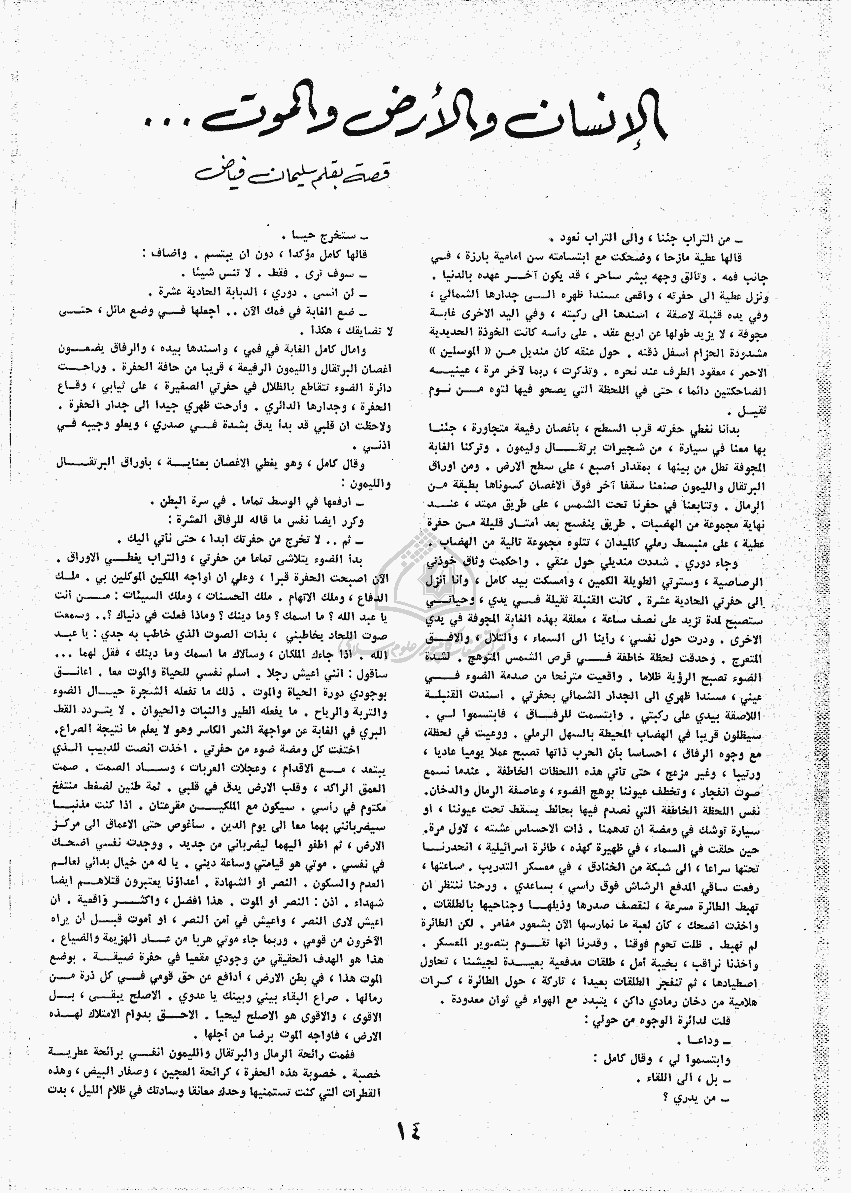 الإنسان والأرض والموت ...
قصة بقلم سليمان فياض
ـ من التراب جئنا ، والى التراب نعود .
قالها عطية مازحا ، وضحكت مع ابتسامته سن امامية بارزة ، فـي
جانب فمه . وتألق وجهه ببشر ساحر ، قد يكون آخـر عهده بالدنيا .
ونزل عطية الى حفرته ، واقعى مسندا ظهره الـى جدارها الشمالي ،
وفي يده قنبلة لاصقة ، اسندها الى ركبته ، وفي اليد الاخرى غابـة
مجوفة ، لا يزيد طولها عن اربع عقد . على رأسه كانت الخوذة الحديدية
مشدودة الحزام اسفل ذقنه . حول عنقه كان منديل مـن « الموسلين »
الاحمر ، معقود الطرف عند نحره . وتذكرت ، ربما لآخر مرة ، عينيـه
الضاحكتين دائما ، حتى في اللحظة التي يصحو فيها لتوه مـن نـوم
ثقيـل .
بدأنا نغطي حفرته قرب السطح ، بأغصان رفيعة متجاورة ، جئنـا
بها معنا في سيارة ، من شجيرات برتقـال وليمون . وتركنا الغابة
المجوفة تطل من بينها ، بمقدار أصبع ، على سطح الارض . ومن اوراق
البرتقال والليمون صنعنا سقفا آخر فوق الاغصان كسوناها بطبقة مـن
الرمال . وتتابعنا في حفرنا تحت الشمس ، على طريق ممتد ، عنـد
نهاية مجموعة من الهضبات . طريق ينفسح بعد أمتـار قليلة مـن حفرة
عطية ، على منبسط رملي كالميدان ، تتلوه مجموعة تالية من الهضاب .
وجاء دوري . شددت منديلي حول عنقي . واحكمت وثاق خوذتي
الرصاصية ، وسترتي الطويلة الكمين ، وامسكت بيد كامل ، وأنا أنزل
الى حفرتي الحادية عشرة . كانت القنبلة ثقيلة فـي يدي ، وحياتـي
ستصبح لمدة تزيد على نصف ساعة ، معلقة بهذه الغابة المجوفة في يدي
الاخرى . ودرت حول نفسي ، رأينا الى السماء ، والتلال ، والافـق
المتعرج . وحدقت لحظة خاطفة فـي قرص الشمس المتوهج . لشدة
الضوء تصبح الرؤية ظلاما . واقعيت مترنحا من صدمة الضوء فـي
عيني ، مسندا ظهري الى الجدار الشمالي بحفرتي . أسندت القنبلـة
اللاصقة بيدي على ركبتي . وابتسمت للرفـاق ، فابتسموا لـي .
سيظلون قريبا في الهضاب المحيطة بالسهل الرملي . ووعيت في لحظة،
مع وجوه الرفاق ، احساسا بأن الحرب ذاتها تصبح عملا يوميا عاديا ،
ورتيبا ، وغير مزعج ، حتى تأتي هذه اللحظات الخاطفة . عندما نسمع
صوت انفجار ، وتخطف عيوننا بوهج الضوء ، وعاصفة الرمال والدخان.
نفس اللحظة الخاطفة التي نصدم فيها بحائط يسقط تحت عيوننا ، او
سيارة توشك في ومضة ان تدهمنا . ذات الاحساس عشته ، لاول مرة.
حين حلقت في السماء ، في ظهيرة كهذه ، طائرة اسرائيلية ، انحدرنـا
تحتها سراعا ، الى شبكة من الخنادق ، في معسكر التدريب . ساعتها ،
رفعت ساقي المدفع الرشاش فوق رأسي ، بساعدي . ورحنا ننتظر ان
تهبط الطائرة مسرعة ، لنقصف صدرها وذيلهـا وجناحيها بالطلقات .
واخذت اضحك ، كأن لعبة ما نمارسها الآن بشعور مقامر . لكن الطائرة
لم تهبط . ظلت تحوم فوقنا . وقدرنا انها تقـوم بتصوير المعسكر .
واخذنا نراقب ، بخيبة أمل ، طلقات مدفعية بعيـدة لجيشنا ، تحاول
اصطيادها ، ثم تنفجر الطلقات بعيدا ، تاركة ، حول الطائرة ، كـرات
هلامية من دخان رمادي داكن ، يتبدد مع الهواء في ثوان معدودة .
قلت لدائرة الوجوه من حولي :
ـ وداعـا .
وابتسموا لي ، وقال كامل :
ـ بل ، الى اللقاء .
ـ من يدري ؟
ـ ستخرج حيـا .
قالها كامل مؤكدا ، دون ان يبتسم . واضاف :
ـ سوف ترى . فقط . لا تنس شيئا .
ـ لن انسى . دوري ، الدبابة الحادية عشرة .
ـ ضع الغابة في فمك الآن .. اجعلها فـي وضع مائل ، حتـى
لا تضايقك ، هكذا .
وامال كامل الغابة في فمي ، واسندها بيده ، والرفاق يضعـون
اغصان البرتقال والليمون الرفيعة ، قريبا من حافة الحفرة . وراحـت
دائرة الضوء تتقاطع بالظلال في حفرتي الصغيرة ، على ثيابي ، وقـاع
الحفرة ، وجدارها الدائري . وارحت ظهري جيدا الى جدار الحفرة .
ولاحظت ان قلبي قد بدأ يدق بشدة فـي صدري ، ويعلو وجيبه فـي
اذنـي .
وقال كامل ، وهو يغطي الاغصان بعنايـة ، بأوراق البرتقـال
والليمون :
ـ ارفعها في الوسط تماما . في سرة البطن .
وكرر ايضا نفس ما قاله للرفاق العشرة :
ـ ثم .. لا تخرج من حفرتك ابدا ، حتى نأتي اليك .
بدأ الضوء يتلاشى تماما من حفرتي ، والتراب يغطـي الاوراق .
الآن اصبحت الحفرة قبرا ، وعلي ان اواجه الملكين الموكلين بي . ملـك
الدفاع ، وملك الاتهام . ملك الحسنات ، وملك السيئات : مـن أنت
يا عبد الله ؟ ما اسمك ؟ وما دينك ؟ وماذا فعلت في دنياك ؟.. وسمعت
صوت اللحاد يخاطبني ، بذات الصوت الذي خاطب به جدي : يا عبـد
الله . اذا جاءك الملكان ، وسألاك ما اسمك وما دينك ، فقل لهما ...
سأقول : انني اعيش رجلا . اسلم نفسي للحياة والموت معا . أعانـق
بوجودي دورة الحياة والموت . ذلك ما تفعله الشجرة حيـال الضوء
والتربة والرياح . ما يفعله الطير والنبات والحيوان . لا يتـردد القط
البري في الغابة عن مواجهة النمر الكاسر وهو لا يعلم ما نتيجة الصراع.
اختفت كل ومضة ضوء من حفرتي . اخذت انصت للدبيب الـذي
يبتعد ، مـع الاقدام ، وعجلات العربات ، وسـاد الصمت . صمت
العمق الراكد ، وقلب الارض يدق في قلبي . ثمة طنين لضغط منتفخ
مكتوم في رأسي . سيكون مع الملكيـن مقرعتان . اذا كنت مذنبـا
سيضربانني بهما معا الى يوم الدين . سأغوص حتى الاعماق الى مركـز
الارض ، ثم اطفو اليهما ليضرباني من جديد . ووجدت نفسي اضحـك
في نفسي . موتي هو قيامتي وساعة ديني . يا له من خيال بدائي لعالـم
العدم والسكون . النصر او الشهادة . أعداؤنا يعتبرون قتلاهـم ايضا
شهداء . اذن : النصر او الموت . هذا افضل ، واكثـر واقعية . ان
اعيش لارى النصر ، واعيش في أمن النصر ، او أموت قبـل أن يراه
الآخرون من قومي . وربما جاء موتي هربا من عـار الهزيمة والضياع .
هذا هو الهدف الحقيقي من وجودي مقعيا في حفرة ضيقـة . بوضع
الموت هذا ، في بطن الارض ، ادافع عن حق قومي فـي كل ذرة مـن
رمالها . صراع البقاء بيني وبينك يا عدوي . الاصلح يبقـى ، بـل
الاقوى ، والاقوى هو الاصلح ليحيا . الاحـق بدوام الامتلاك لهـذه
الارض ، فأواجه الموت برضا من أجلها .
فغمت رائحة الرمال والبرتقال والليمون انفـي برائحة عطريـة
خصبة . خصوبة هذه الحفرة ، كرائحة العجين ، وصفار البيض ، وهذه
القطرات التي كنت تستمنيها وحدك معانقا وسادتك في ظلام الليل ، بدت
١٤